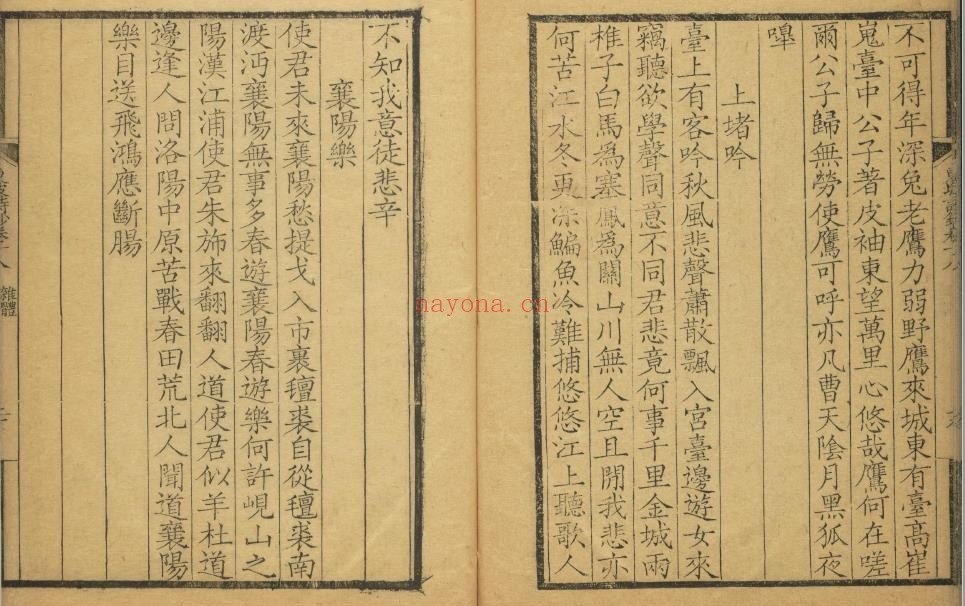 不可得年深兔老鷹力弱野鷹來城東有臺高崔
嵬臺中公子著皮袖東望萬里心悠哉鷹何在嗟
爾公子歸無勞使鷹可呼亦凡曹天陰月黑狐夜
嘷
上堵吟
臺上有客吟秋風悲聲蕭散飄入宮臺邊遊女來
竊聽欲學聲同意不同君悲竟何事千里金城兩
稚子白馬為塞鳳為關山川無人空且閒我悲亦
何苦江水冬更深鯿魚冷難捕悠悠江上聽歌人
不知我意徒悲辛
襄陽樂
使君未來襄陽愁提戈入市裹氊裘自從氊裘南
渡沔襄陽無事多春遊襄陽春遊樂何許峴山之
陽漢江浦使君朱斾來翻翻人道使君似羊杜道
邊逢人問洛陽中原苦戰春田荒北人聞道襄陽
樂目送飛鴻應斷腸
雜體
nayona.cn